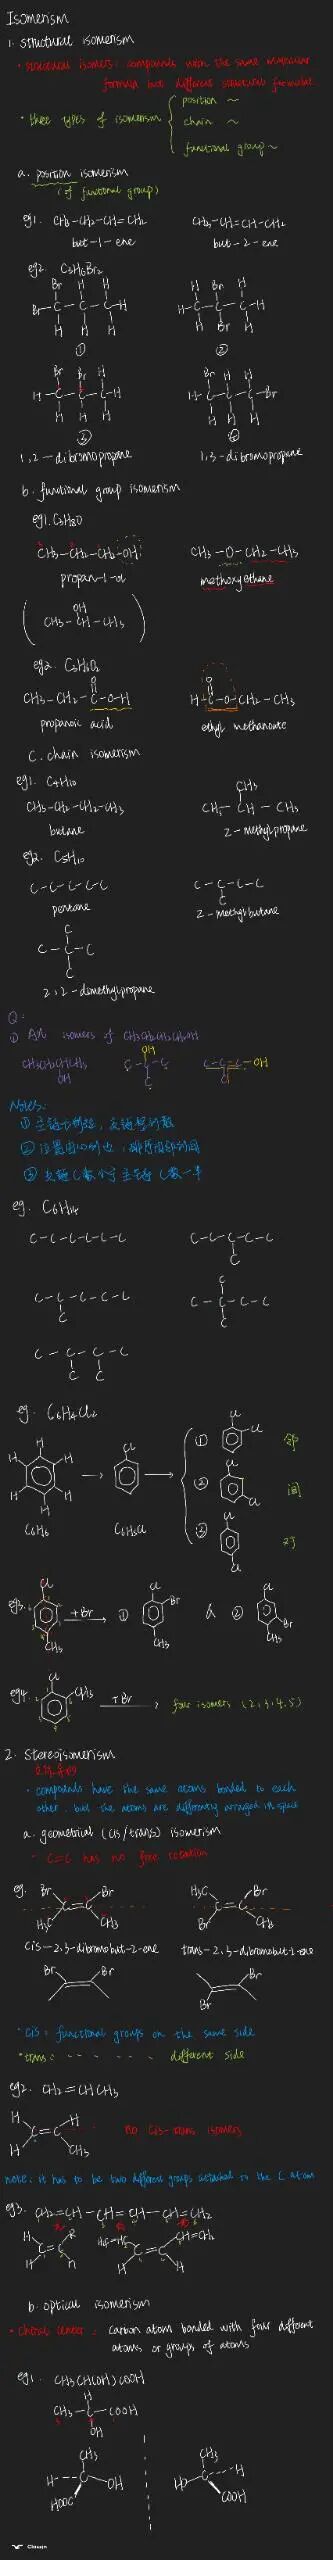 Isomerism
1. structural isomerism
• structural isomers: compounds with the same molecular
formula but different structural formulae
• three types of isomerism
position ~
chain ~
functional group ~
a. position isomerism
(of functional group)
eg1. CH3-CH2-CH=CH2
CH3-CH=CH-CH2
but-1-ene
but-2-ene
eg2. C3H6Br2
① ②
③ ④
1,2-dibromopropane
1,3-dibromopropane
b. functional group isomerism
eg1. C3H8O
CH3-CH2-CH2-OH
CH3-O-CH2-CH3
propan-1-ol
methoxyethane
OH
CH3-CH-CH3
eg2. C3H6O2
O
CH3-CH2-C-O-H
O
H-C-O-CH2-CH3
propanoic acid
ethyl methanoate
C. chain isomerism
eg1. C4H10
CH3-CH2-CH2-CH3
CH3
CH3-CH-CH3
butane
2-methylpropane
eg2. C5H10
C-C-C-C-C
C-C-C-C
C
pentane
2-methylbutane
C
C-C-C
C
2,2-dimethylpropane
Q:
① All isomers of CH3CH2CH2CH2OH
CH3CH2CHCH3
OH
OH
C-C-C
C
C-C-C-OH
C
Notes:
eg. C6H14
C-C-C-C-C-C
C-C-C-C-C
C
C-C-C-C-C
C
C
C-C-C-C
C
C-C-C-C
C C
eg. C6H4Cl2
C6H6
C6H5Cl
① 邻
② 间
③ 对
eg3.
Cl
CH3
+Br
①
Cl
Br
CH3
②
Cl
Br
CH3
eg4.
Cl
CH3
+Br
four isomers (2,3,4,5)
2. Stereoisomerism
• compounds have the same atoms bonded to each
other, but the atoms are differently arranged in space
a. geometrical (cis/trans) isomerism
- C=C has no free rotation
eg.
Br Br
C=C
H3C CH3
H3C Br
C=C
Br CH3
cis-2,3-dibromobut-2-ene
trans-2,3-dibromobut-2-ene
Br Br
Br
Br
• cis: functional groups on the same side
• trans: - - - - - different side
eg2. CH2=CHCH3
H H
C=C
H CH3
no cis-trans isomers
note: it has to be two different groups attached to the C atom
eg3. CH2=CH-CH=CH-CH=CH2
b. optical isomerism
• chiral center: carbon atom bonded with four different
atoms or groups of atoms
eg1. CH3CH(OH)COOH
H
CH3-C-COOH
OH
CH3
H C OH
HOOC
CH3
HO C H
COOH